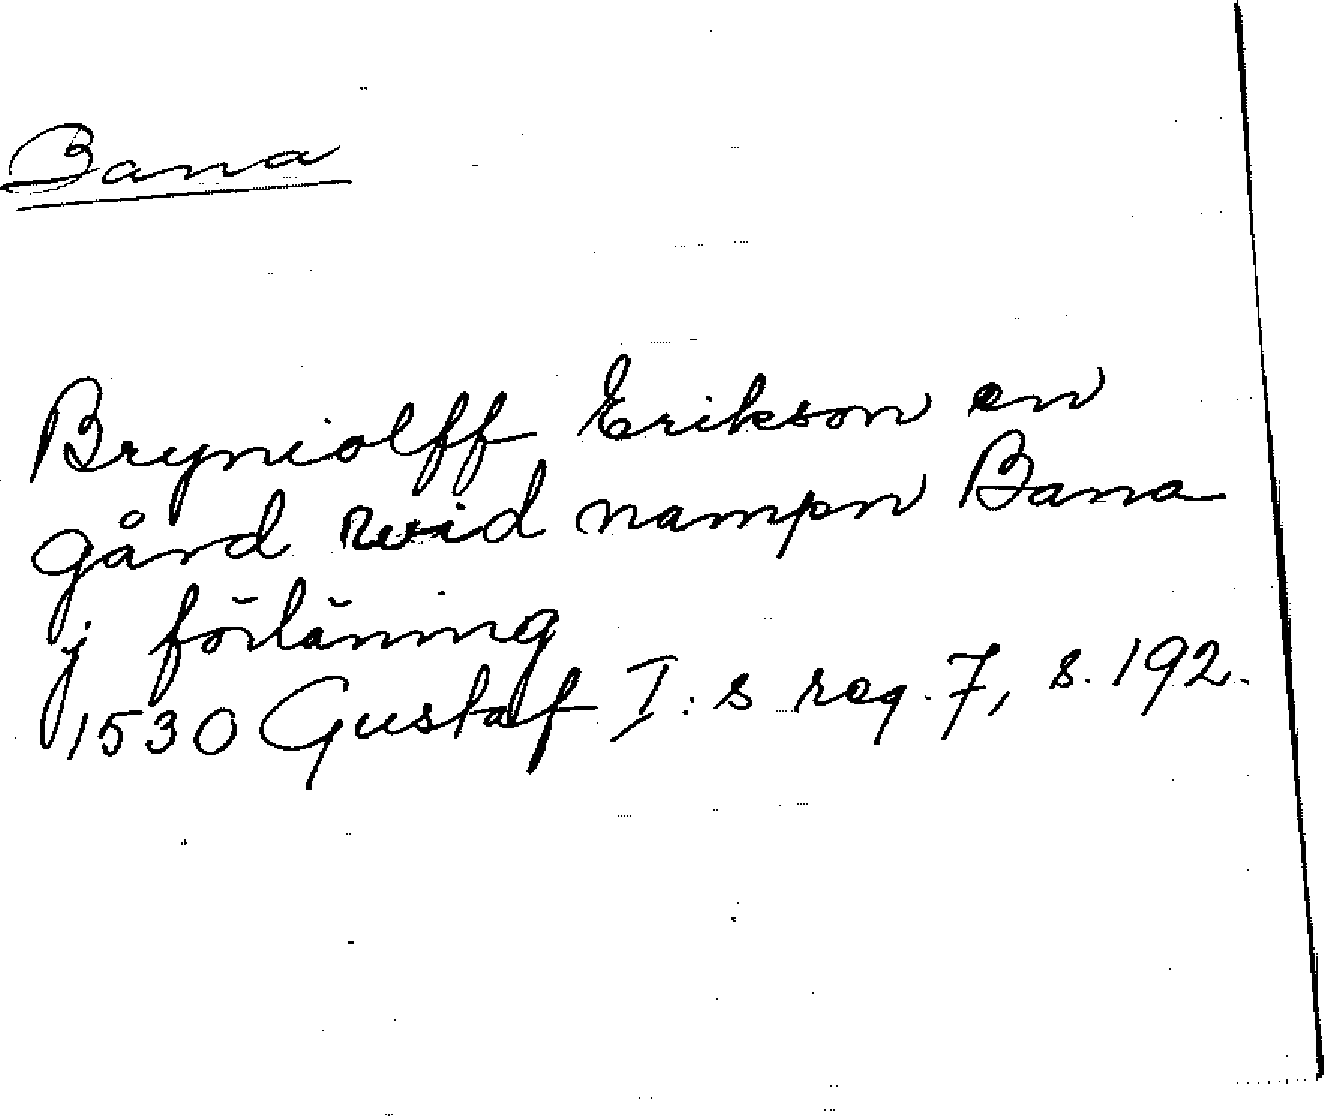 Bana
Bryniolff Erikson en
gård wid nampn Bana
j förläning
1530 Gustaf I:s reg. 7, s. 192.